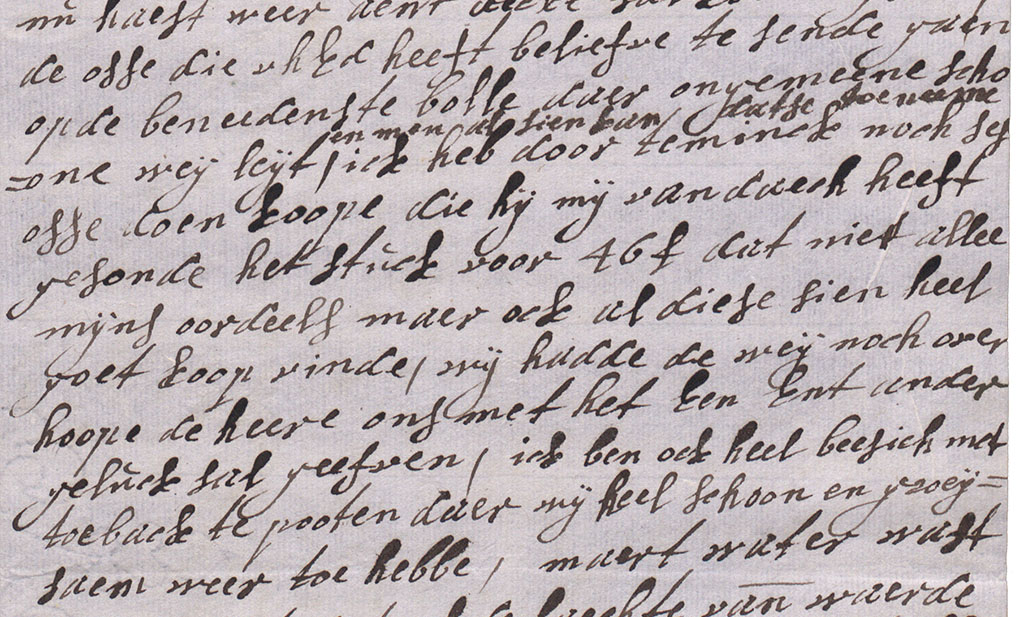 nu haest weer
de osse die vhEd heeft beliefve te sende gaen
opde beneedenste bolle daer ongemeene scho
en men al sien kan datse toeneeme
=one wey leyt, ick heb door teminck noch ses
osse doen koope die hij mij van daech heeft
gesonde het stuck voor 46 f dat niet allee
mijns oordeels maer ock al diese sien heel
goet koop vinde, wij hadde de weij noch over
hoope de heere ons met het Een Ent ander
geluck sal geefven, ick ben ock heel beesich met
toeback te pooten daer wij heel schoon en groeij=
saem weer toe hebbe, maert water wast
van waerde